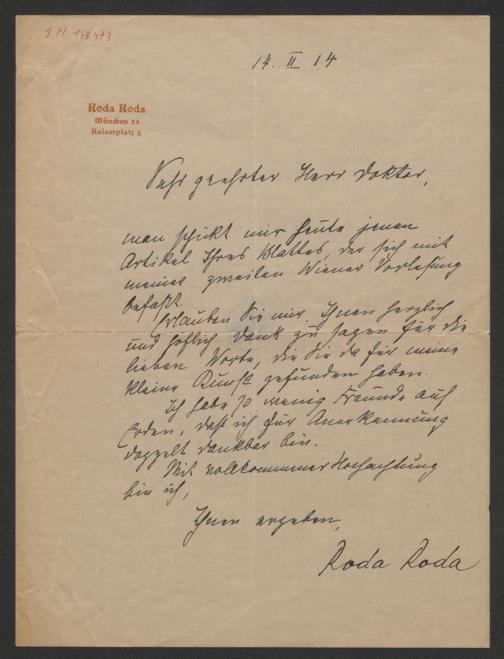 I.N. 149.473
14. II 14
Roda Roda
München 23
Kaiserplatz 5
Sehr geehrter Herr Doktor,
man schickt mir heute jenen
Artikel Ihres Blattes, der sich mit
meiner zweiten Wiener Vorlesung
befaßt.
Erlauben Sie mir, Ihnen herzlich
und höflich Dank zu sagen für die
lieben Worte, die Sie da für meine
kleine Kunst gefunden haben.
Ich habe so wenig Freunde auf
Erden, daß ich für Anerkennung
doppelt dankbar bin.
Mit vollkommener Hochachtung
bin ich,
Ihnen ergeben,
Roda Roda